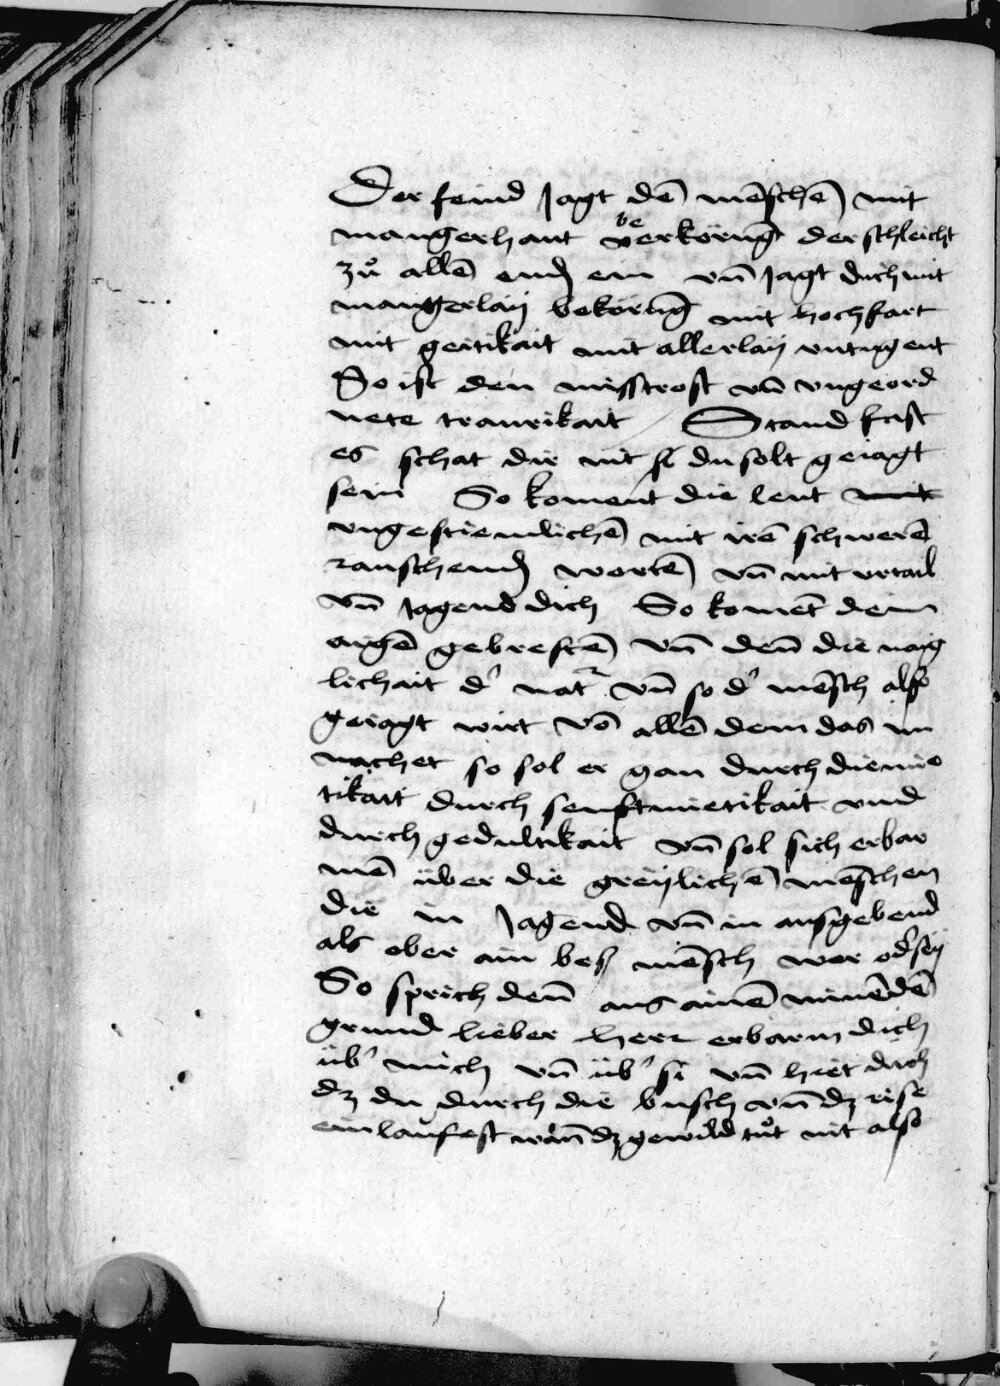 Der feind Jagt dē mēschē mit
mangerhant verkörūg der schleicht
be
zů allē end ein vn̄ Jagt dich mit
mangerlaÿ bekörūg mit hochfart
mit geitikait mit allerlaÿ vntugent
So ist den misstrost vn̄ vngeord
nete traurikait / Stand fast
es schat dir nit si du solt geiagt
sein So koment die leut mit
vngestiemlichē mit irē schwerē
rauschend wortē vn̄ mit vrtail
vn̄ Jagend dich So komēt dein
aigē gebrestē vn̄ den̄ die naig
lichait d' nat᷑ vn̄ so d' mēsch also
geiagt wirt vō allē dem das im
nachet so sol er gan durch diemie
tikait durch senftmietikait vnd
durch gedultikait vn̄ sol sich erbar
mē über die greÿlichē mēschen
die in Jagend vn̄ in ausgebend
als ober ain bes mēsch wer od' seÿ
So sprich den̄ aus ainē minēdē
grund lieber herr erbarm dich
üb' mich vn̄ üb' si vn̄ hiet dich
dz du durch die busch vn̄ dz rise
ein laufest wan̄ dz gewild tůt nit also